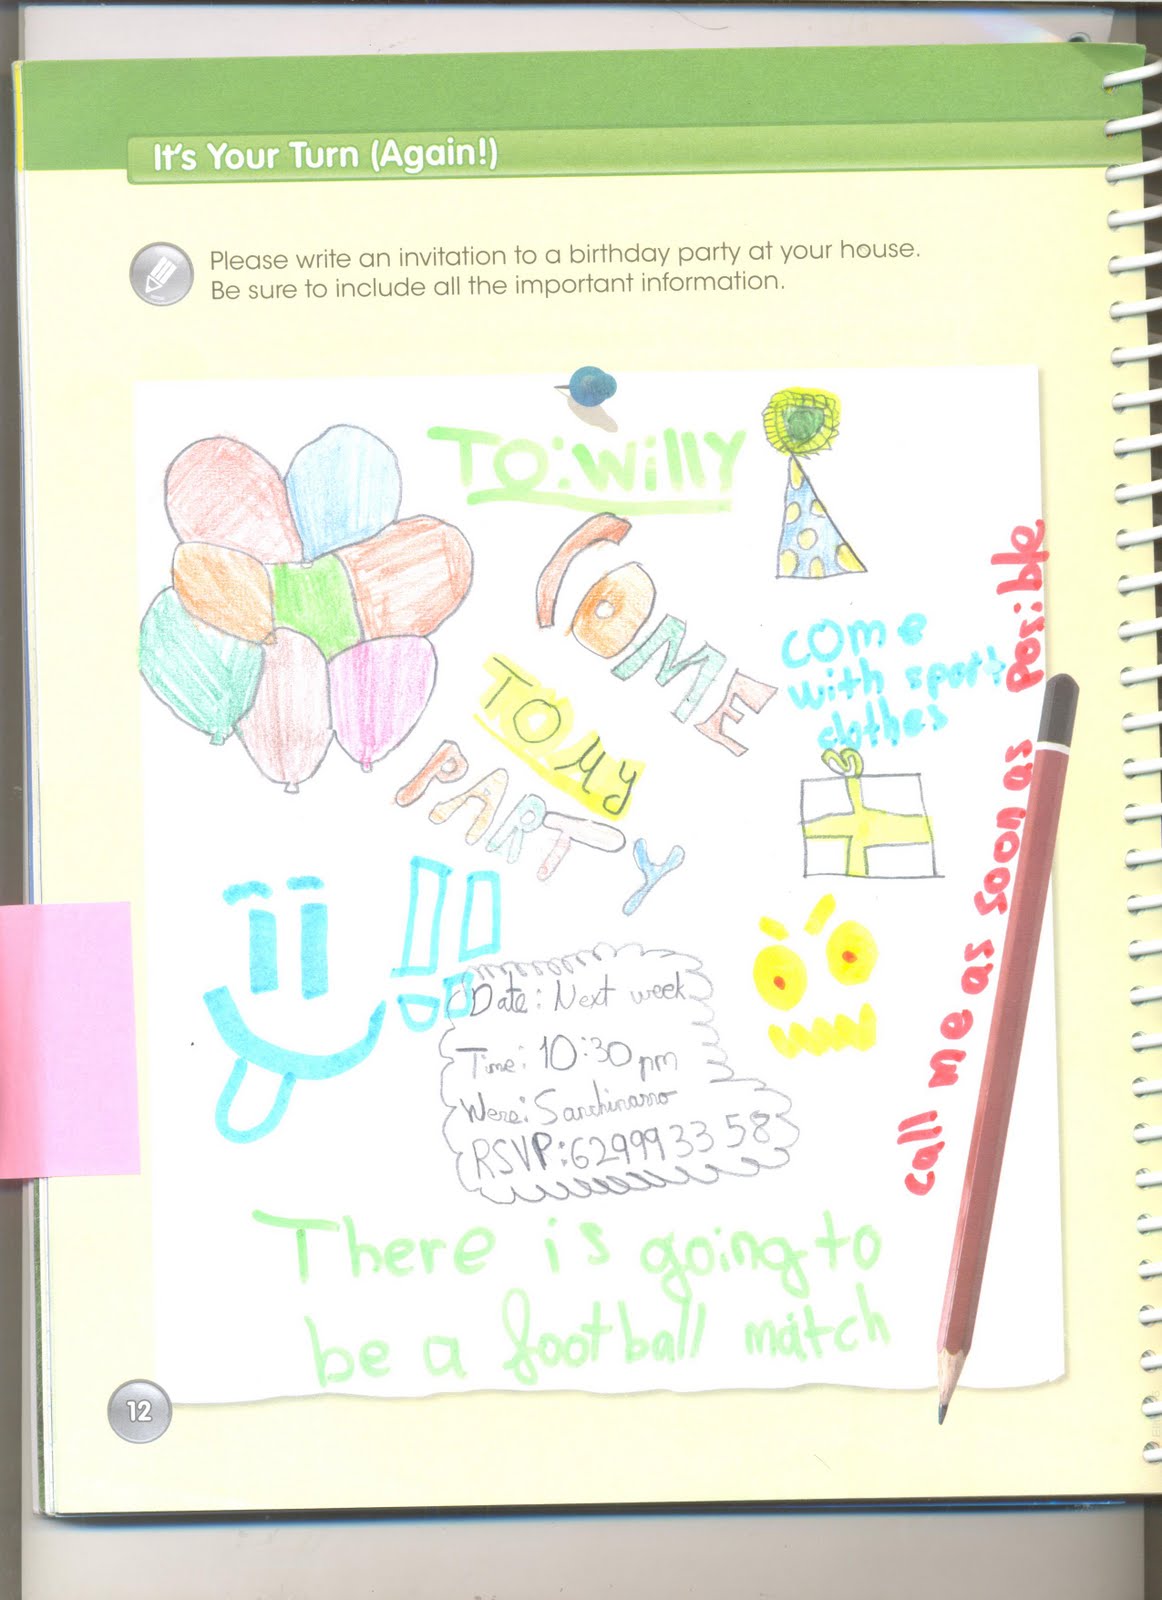 It's Your Turn (Again!)
Please write an invitation to a birthday party at your house.
Be sure to include all the important information.
TO: Willy
COME
TO MY
PARTY
!!
come
with sport
clothes
call me as soon as posible
Date: Next week
Time: 10:30 pm
Were: Sanchinarro
RSVP: 629993358
There is going to
be a football match
12